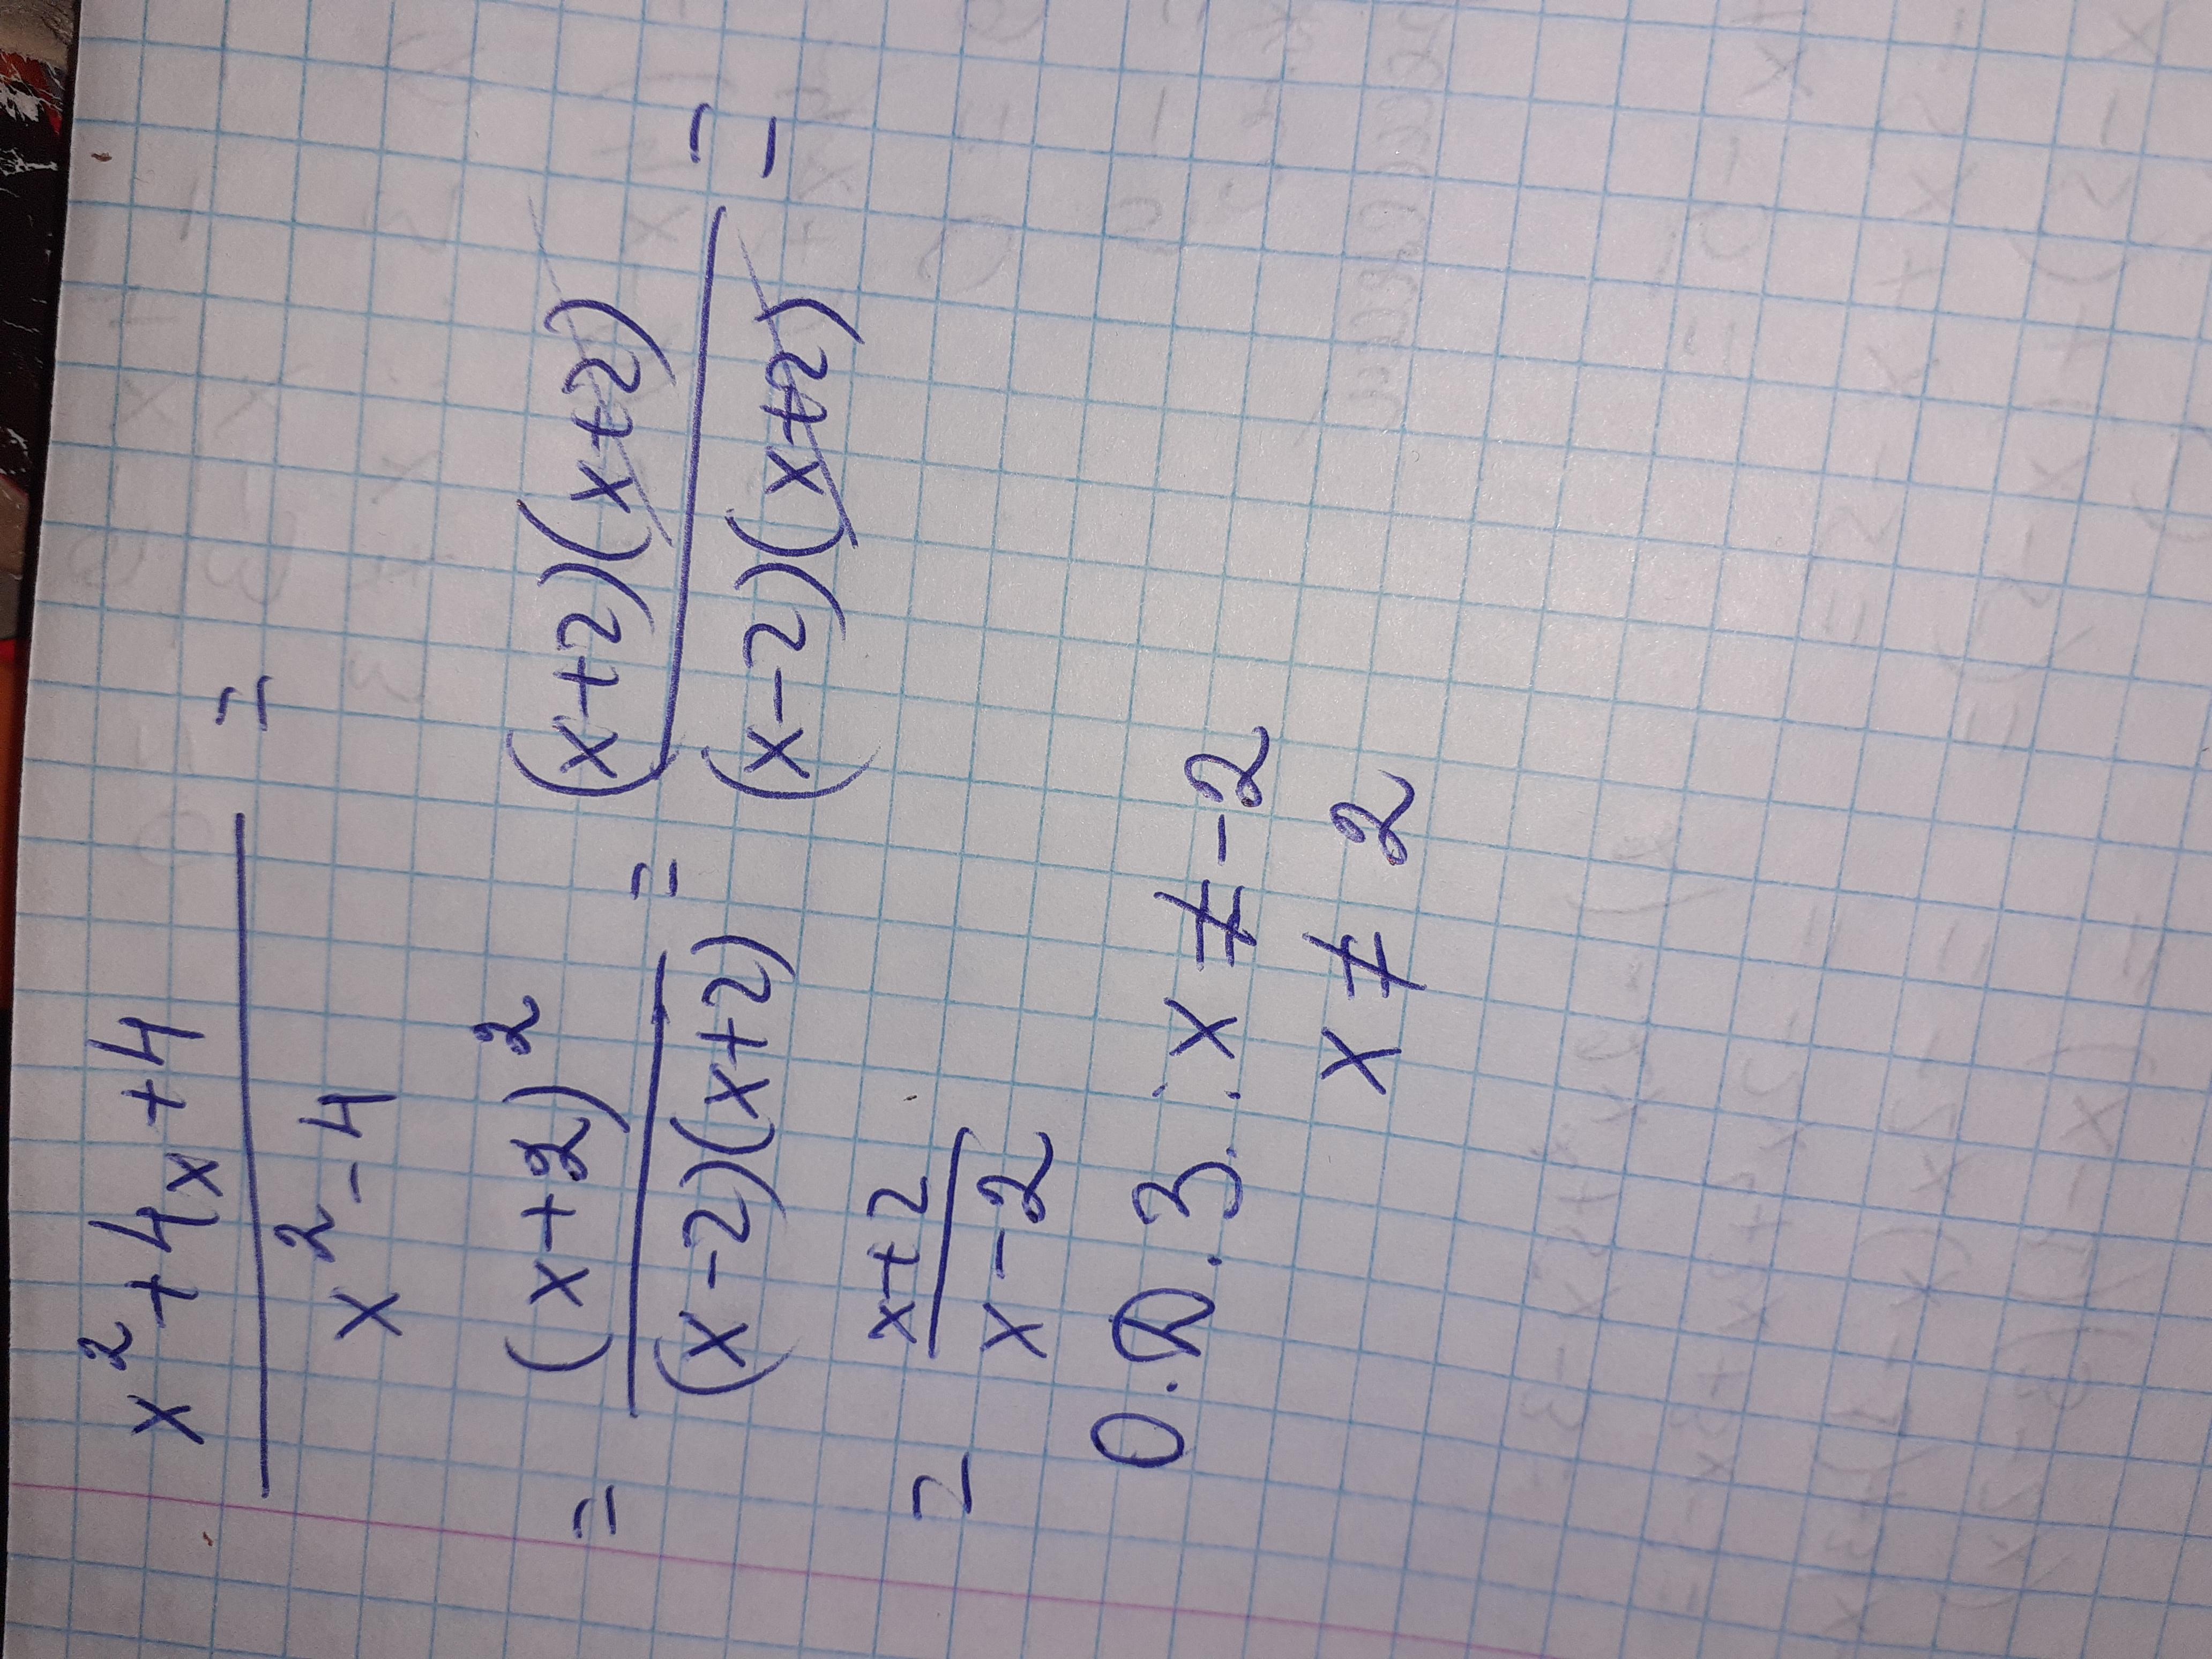 x² + 4x + 4 =
x² - 4
= (x+2)² = (x+2)(x+2) =
(x-2)(x+2) (x-2)(x+2)
= x+2
x-2
О.Д.З.: x ≠ -2
x ≠ 2